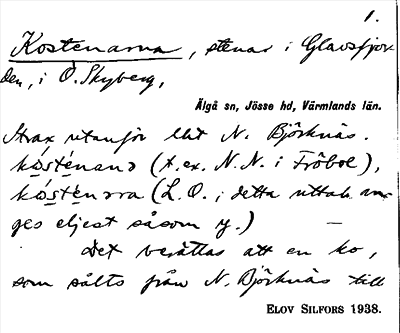 1.
Kostenarna, stenar i Glavsfjor
den, i Ö. Skyberg,
Älgå sn, Jösse hd, Värmlands län.
Strax utanför N. Björknäs.
(t.ex. N.N. i Fröbol),
(L.O.; detta uttal an-
ges eljest såsom y.) —
Det berättas att en ko,
som sålts från N. Björknäs till
ELOV SILFORS 1938.